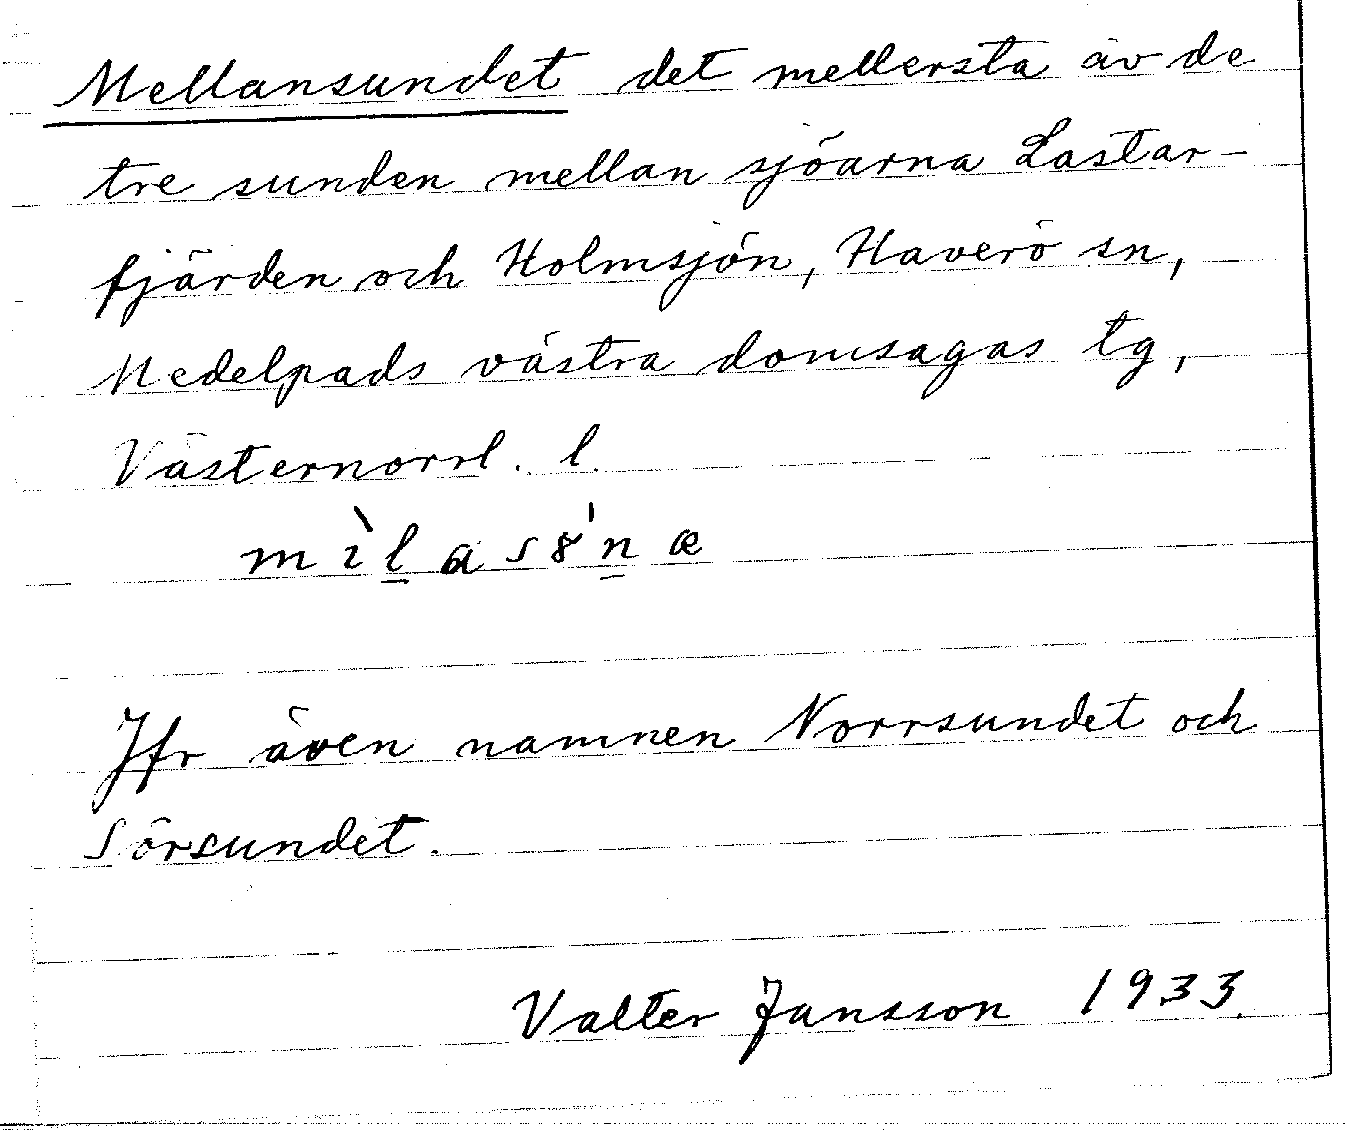 Mellansundet det mellersta av de
tre sunden mellan sjöarna Lastar-
fjärden och Holmsjön, Haverö sn,
Medelpads västra domsagas tg,
Västernorrl. l.
mìl̲as8'n̲æ
Jfr även namnen Norrsundet och
Sörsundet.
Valter Jansson 1933.